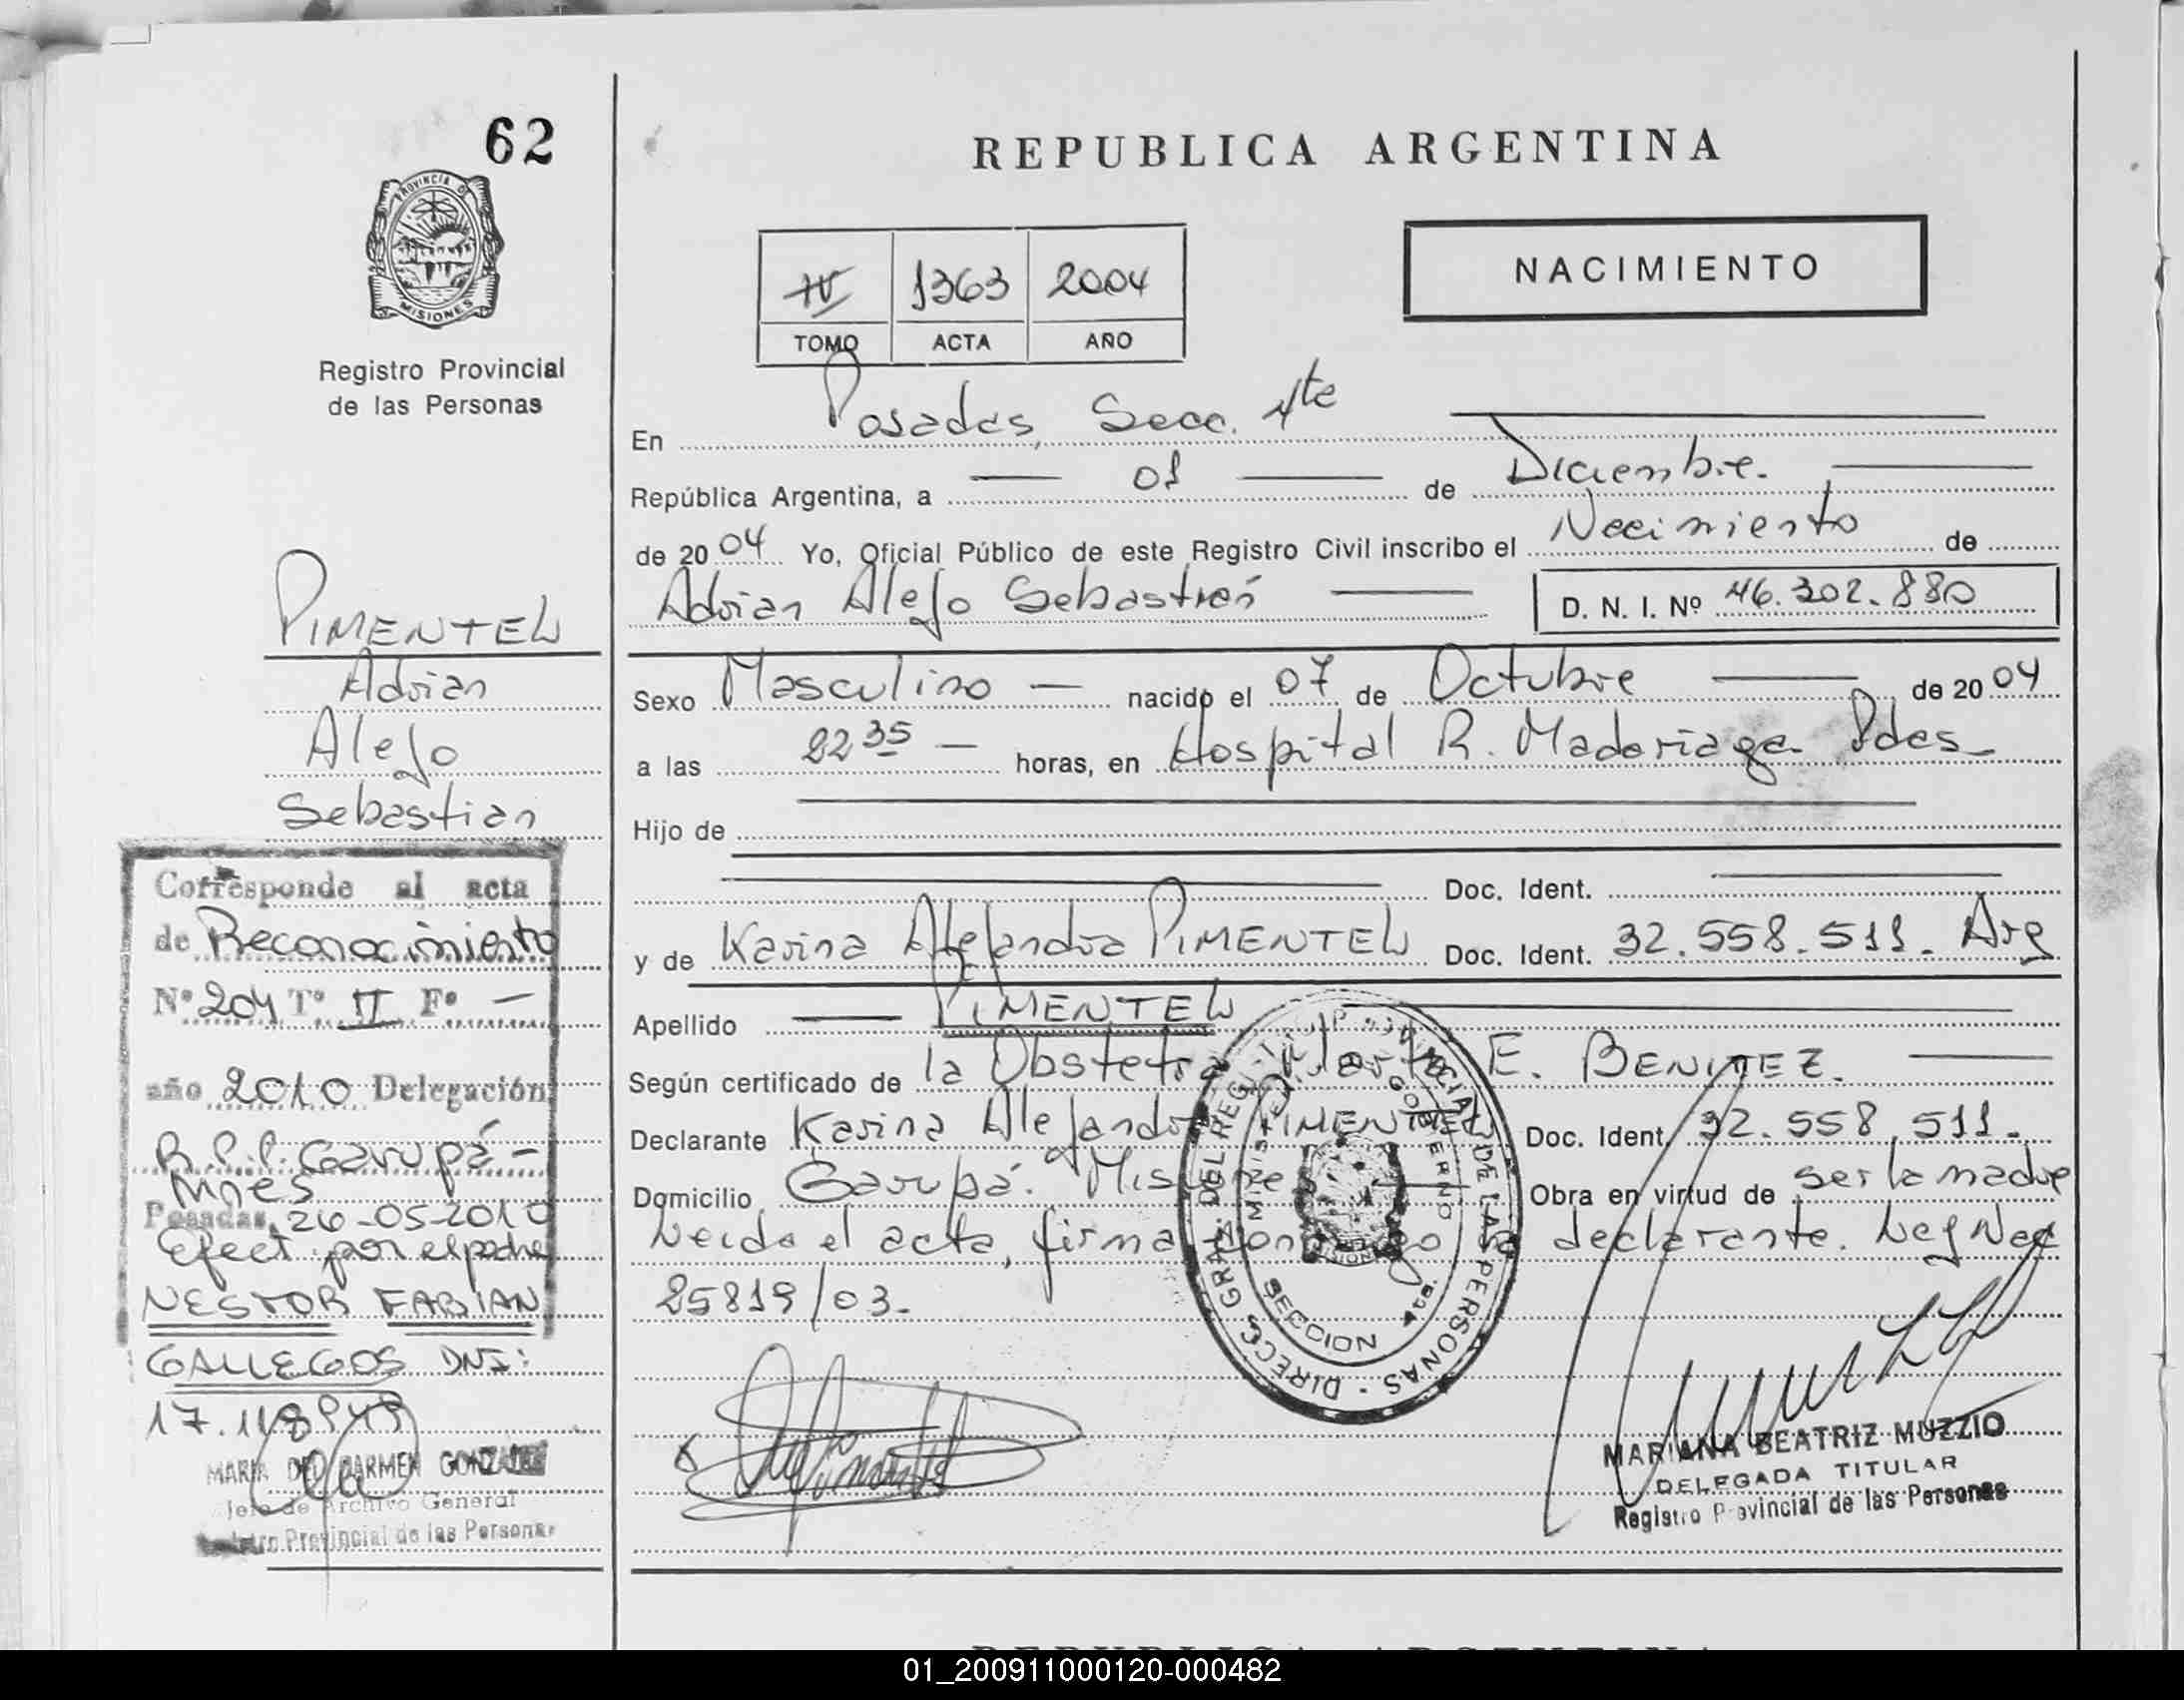 62
PROVINCIA DE
MISIONES
Registro Provincial
de las Personas
PIMENTEL
Adrian
Alejo
Sebastian
Corresponde al acta
de Reconocimiento
Nº 204 Tº II Fº —
año 2010 Delegación
R.P.P. Garupá -
Mnes
Posadas, 26-05-2010
Efect. por el padre
NESTOR FABIAN
GALLEGOS DNI:
MARIA DEL CARMEN GONZALEZ
Jefe de Archivo General
Registro Provincial de las Personas
REPUBLICA ARGENTINA
IV 1363 2004
TOMO ACTA AÑO
NACIMIENTO
En Posadas, Secc. 4ta
República Argentina, a 01 de Diciembre.
de 2004 Yo, Oficial Público de este Registro Civil inscribo el Nacimiento de
Adrian Alejo Sebastián D. N. I. Nº 46.302.880
Sexo Masculino — nacido el 07 de Octubre de 2004
a las 22 35 — horas, en Hospital R. Madariaga Pdas
Hijo de
Doc. Ident.
y de Karina Alejandra PIMENTEL Doc. Ident. 32.558.511. Arg
Apellido — PIMENTEL
Según certificado de la Obstetra Marta E. BENITEZ.
Declarante Karina Alejandra PIMENTEL Doc. Ident. 32.558.511.
Domicilio Garupá. Misiones Obra en virtud de ser la madre
Leida el acta, firma conmigo la declarante. Ley Nac
25819/03.
DIRECC. GRAL. DEL REGISTRO PROVINCIAL DE LAS PERSONAS
MINISTERIO DE GOBIERNO
SECCION 4ta.
MARIANA BEATRIZ MUZZIO
DELEGADA TITULAR
Registro Provincial de las Personas
01_200911000120-000482